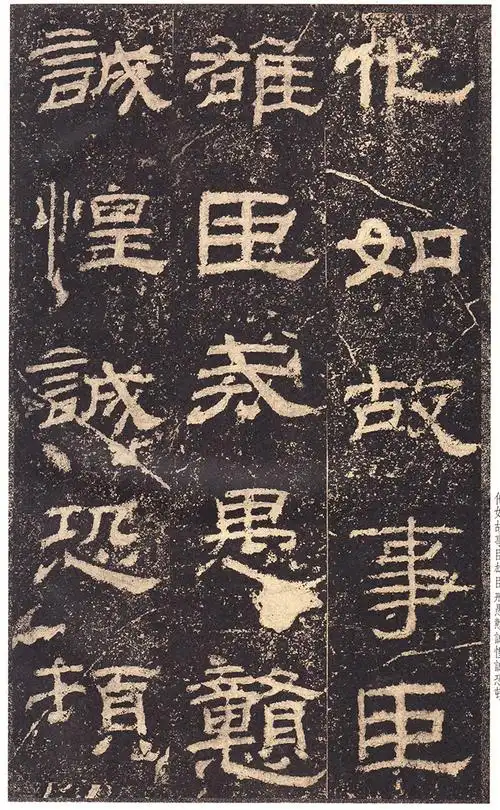 他如故事臣雄臣戒愚戇誠惶誠恐頓
他如故事臣
雄臣戒愚戇
誠惶誠恐頓